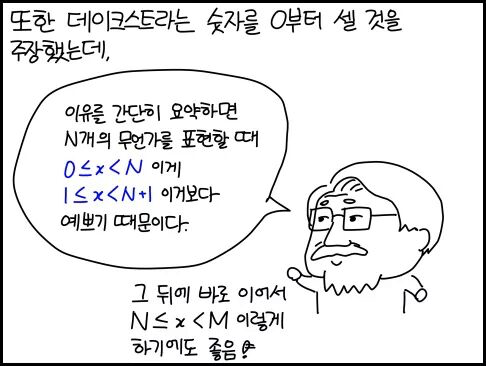 또한 데이크스트라는 숫자를 0부터 셀 것을
주장했는데,
이유를 간단히 요약하면
N개의 무언가를 표현할 때
0≤x<N 이게
1≤x<N+1 이거보다
예쁘기 때문이다.
그 뒤에 바로 이어서
N≤x<M 이렇게
하기에도 좋음!